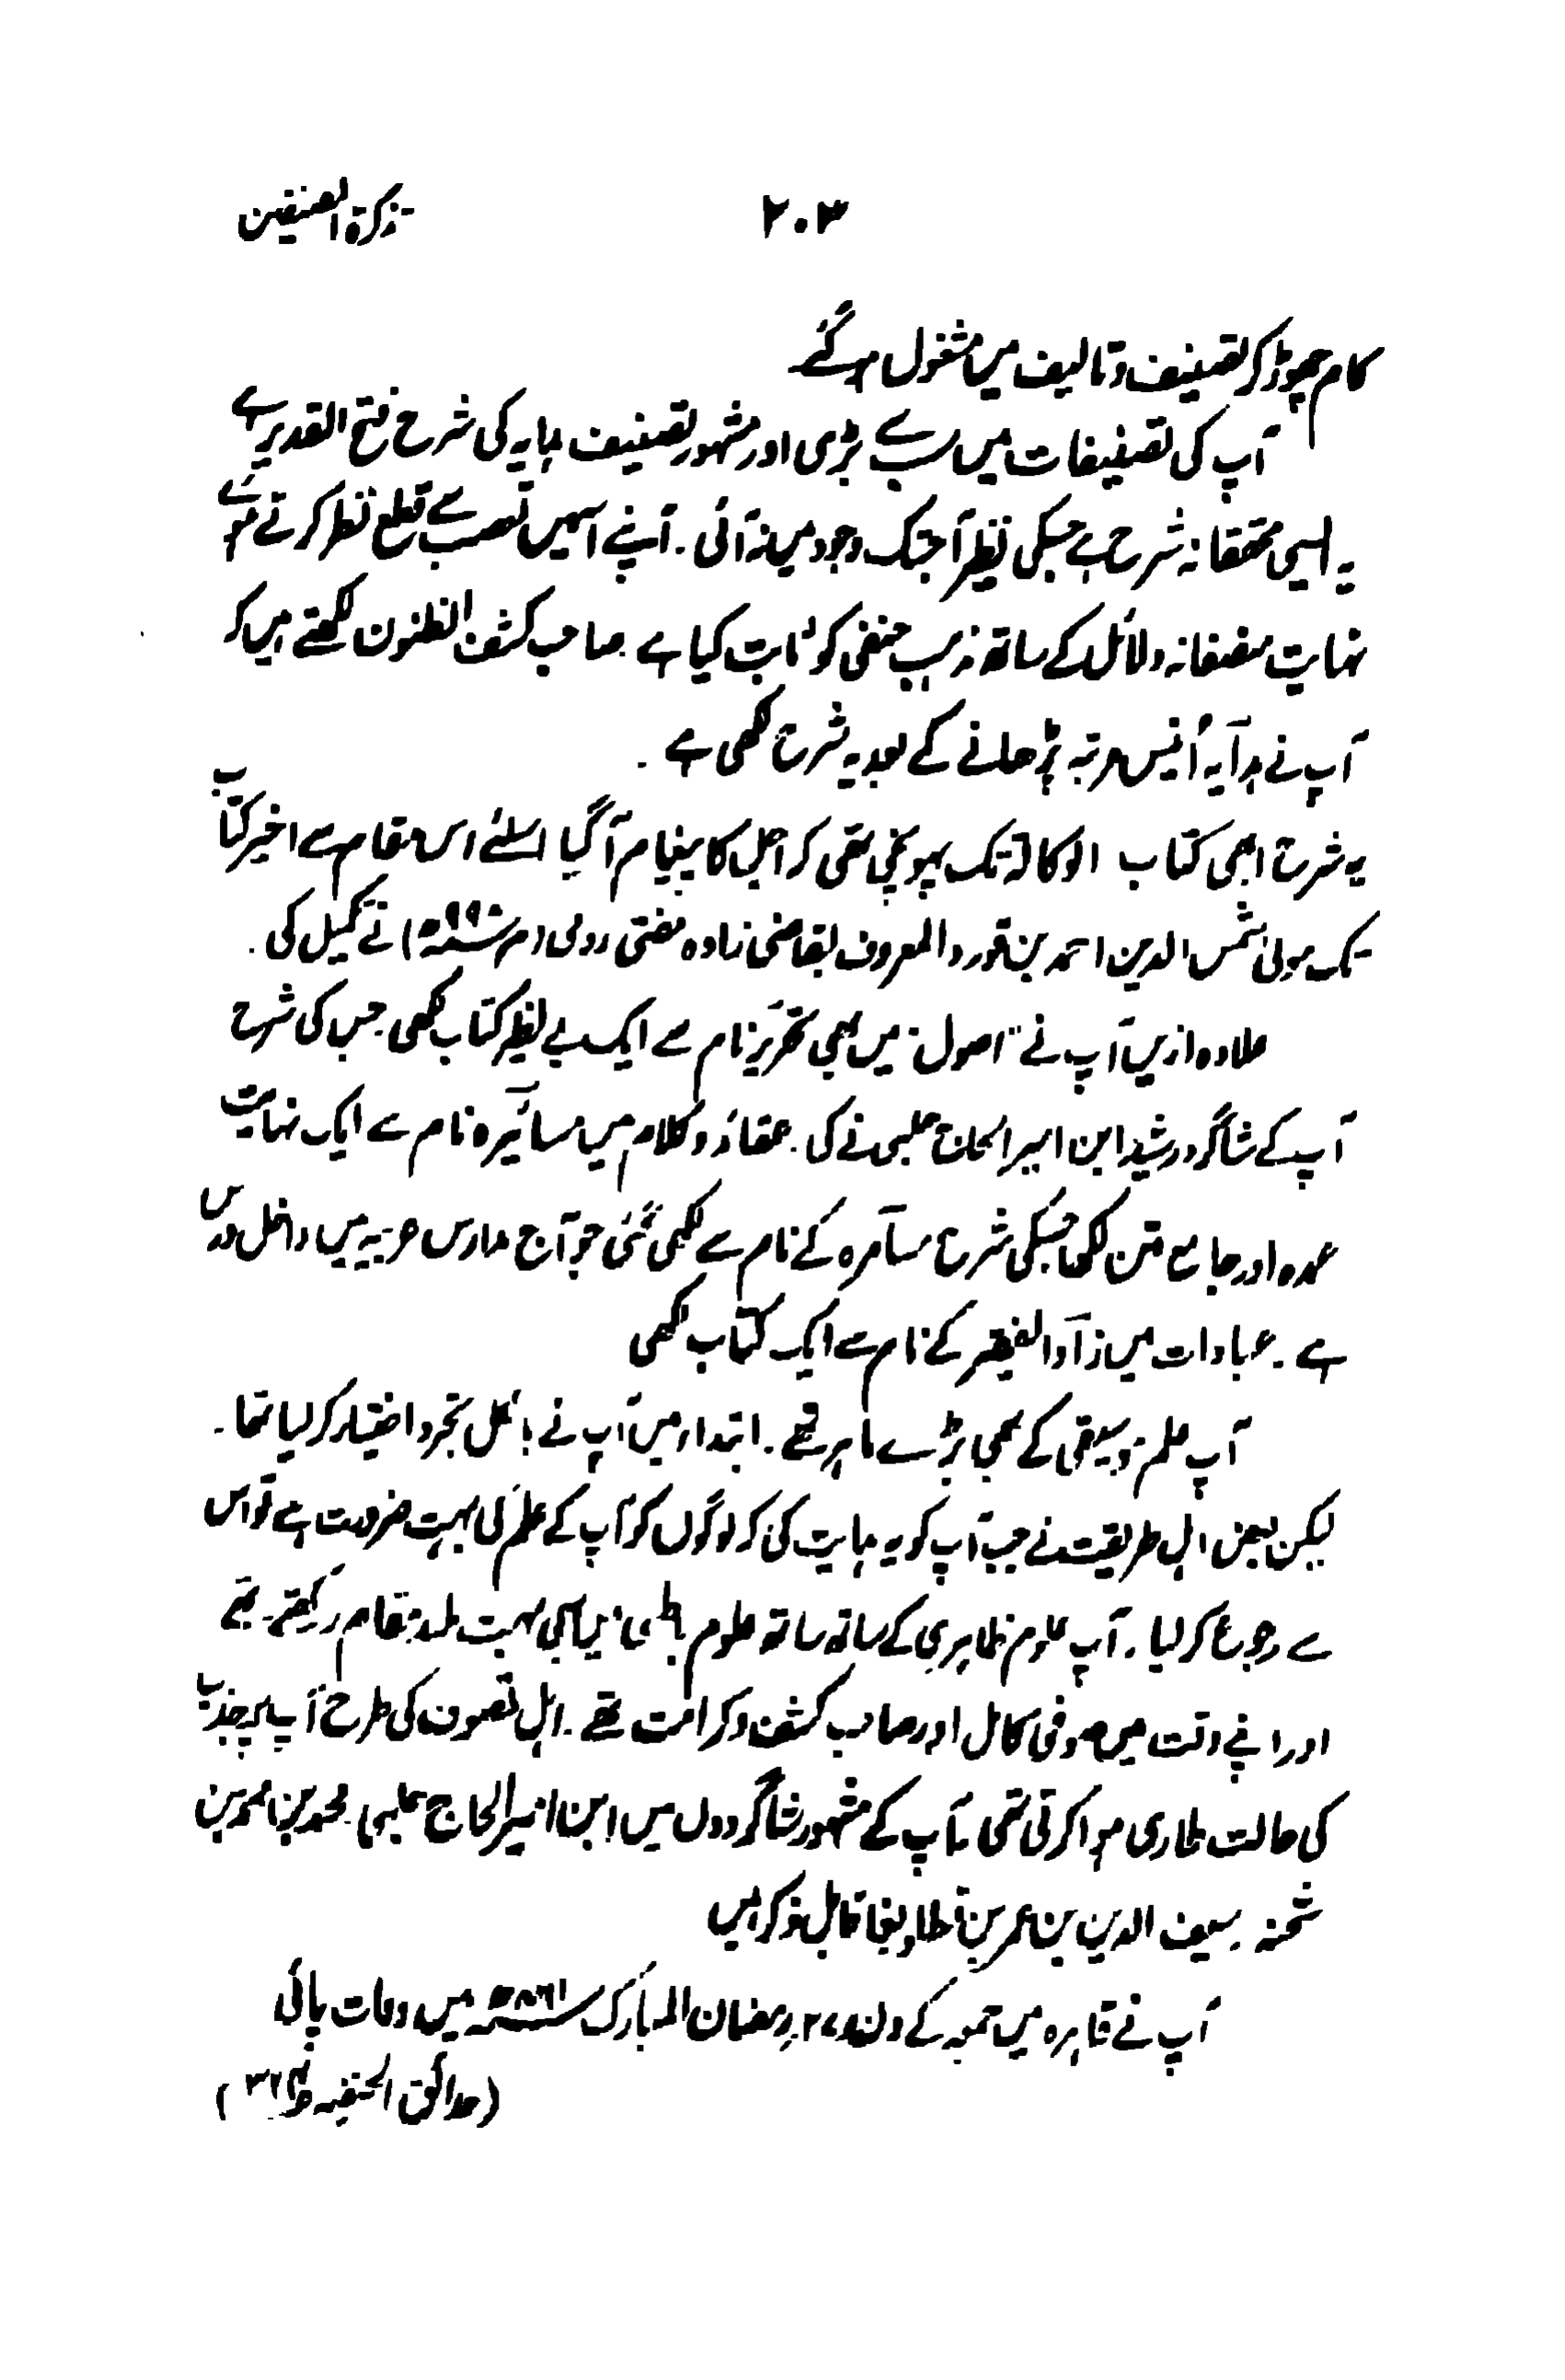 تذکرۃ المصنفین
۲۰۳
کام چھوڑ کر تصنیف و تالیف میں مشغول ہو گئے
آپ کی تصنیفات میں سب سے بڑی اور مشہور تصنیف ہدایہ کی شرح فتح القدیر ہے
یہ ایسی محققانہ شرح ہے جسکی نظیر آجتک وجود میں نہ آئی۔ آپنے اسمیں تعصب سے قطع نظر کرتے ہوئے
نہایت منصفانہ دلائل کے ساتھ مذہب حنفی کو ثابت کیا ہے۔ صاحب کشف الظنون لکھتے ہیں کہ
آپ نے ہدایہ اُنیس مرتبہ پڑھانے کے بعد یہ شرح لکھی ہے۔
یہ شرح ابھی کتاب الوکالۃ تک پہونچی تھی کہ اجل کا پیغام آگیا اسلئے اس مقام سے اخیر کتاب
تک مولیٰ شمس الدین احمد بن قورد المعروف بقاضی زادہ مفتی رومی (م ۹۹۰ھ) نے تکمیل کی۔
علاوہ ازیں آپ نے "اصول" میں بھی تحریر نام سے ایک بے نظیر کتاب لکھی جس کی شرح
آپ کے شاگرد رشید ابن امیر الحاج حلبی نے کی۔ عقائد و کلام میں مسائرہ نام سے ایک نہایت
عمدہ اور جامع متن لکھا جسکی شرح مسامرہ کے نام سے لکھی گئی جو آج مدارس عربیہ میں داخل درس
ہے۔ عبادات میں زاد الفقیر کے نام سے ایک کتاب لکھی
آپ علم موسیقی کے بھی بڑے ماہر تھے۔ ابتداء میں آپ نے بالکل تجرد اختیار کر لیا تھا۔
لیکن بعض اہل طریقت نے جب آپ کو یہ ہدایت کی کہ لوگوں کو آپ کے علم کی بہت ضرورت ہے تو اس
سے رجوع کر لیا۔ آپ علوم ظاہری کے ساتھ ساتھ علوم باطنی میں بھی بہت بلند مقام رکھتے تھے
اور اپنے وقت میں صوفی کامل اور صاحب کشف و کرامت تھے۔ اہل تصوف کی طرح آپ پر جذب
کی حالت طاری ہوا کرتی تھی آپ کے مشہور شاگردوں میں ابن امیر الحاج حلبی۔ محمد بن محمد بن
شحنہ۔ سیف الدین بن عمر بن قطلوبغا قابل ذکر ہیں
آپ نے قاہرہ میں جمعہ کے دن ۲۷ رمضان المبارک ۸۶۱ھ میں وفات پائی
(حدائق الحنفیہ)